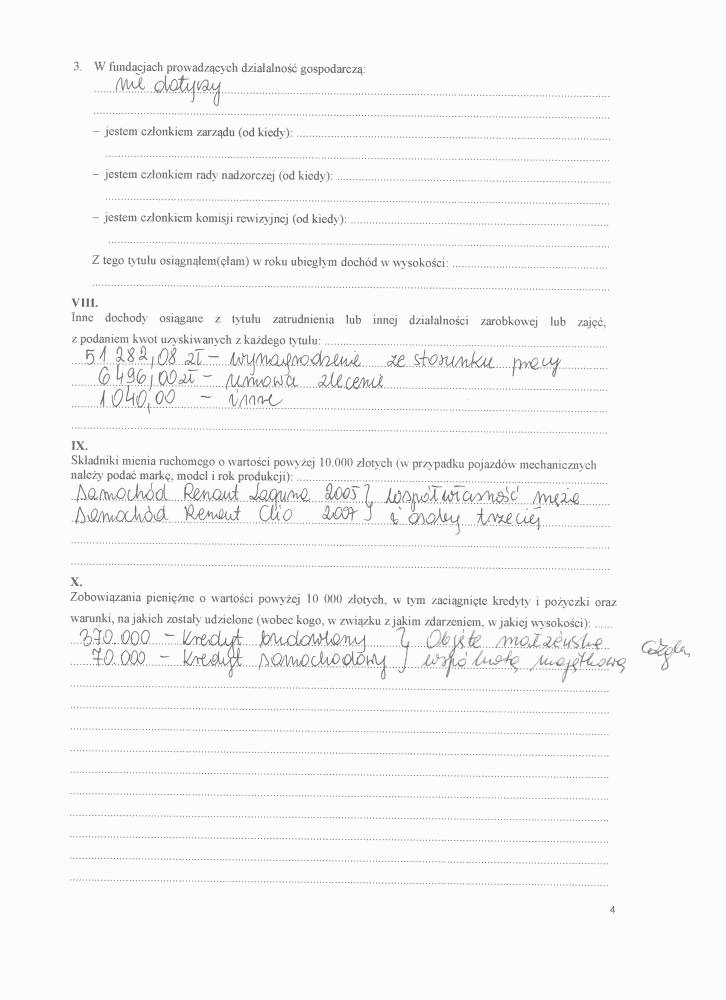 3. W fundacjach prowadzących działalność gospodarczą:
nie dotyczy
– jestem członkiem zarządu (od kiedy):
– jestem członkiem rady nadzorczej (od kiedy):
– jestem członkiem komisji rewizyjnej (od kiedy):
Z tego tytułu osiągnąłem(ęłam) w roku ubiegłym dochód w wysokości:
VIII.
Inne dochody osiągane z tytułu zatrudnienia lub innej działalności zarobkowej lub zajęć,
z podaniem kwot uzyskiwanych z każdego tytułu:
51 282,08 zł – wynagrodzenie ze stosunku pracy
6 496,00 zł – umowa zlecenie
1 040,00 – inne
IX.
Składniki mienia ruchomego o wartości powyżej 10.000 złotych (w przypadku pojazdów mechanicznych
należy podać markę, model i rok produkcji):
samochód Renaut Laguna 2005 } współwłasność męża
samochód Renaut Clio 2007 } i osoby trzeciej
X.
Zobowiązania pieniężne o wartości powyżej 10 000 złotych, w tym zaciągnięte kredyty i pożyczki oraz
warunki, na jakich zostały udzielone (wobec kogo, w związku z jakim zdarzeniem, w jakiej wysokości):
370.000 – kredyt budowlany } Objęte małżeńską
70.000 – kredyt samochodowy } wspólnotą majątkową
4